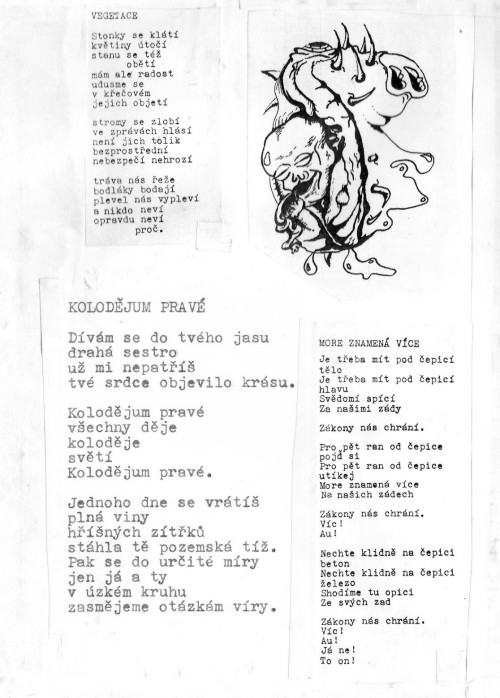 VEGETACE
Stonky se klátí
květiny útočí
stanu se též
obětí
mám ale radost
udusme se
v křečovém
jejich objetí
stromy se zlobí
ve zprávách hlásí
není jich tolik
bezprostřední
nebezpečí nehrozí
tráva nás řeže
bodláky bodají
plevel nás vypleví
a nikdo neví
opravdu neví
proč.
KOLODĚJUM PRAVÉ
Dívám se do tvého jasu
drahá sestro
už mi nepatříš
tvé srdce objevilo krásu.
Kolodějum pravé
všechny děje
koloděje
světí
Kolodějum pravé.
Jednoho dne se vrátíš
plná viny
hříšných zítřků
stáhla tě pozemská tíž.
Pak se do určité míry
jen já a ty
v úzkém kruhu
zasmějeme otázkám víry.
MORE ZNAMENÁ VÍCE
Je třeba mít pod čepicí
tělo
Je třeba mít pod čepicí
hlavu
Svědomí spící
Za našimi zády
Zákony nás chrání.
Pro pět ran od čepice
pojď si
Pro pět ran od čepice
utíkej
More znamená více
Na našich zádech
Zákony nás chrání.
Víc!
Au!
Nechte klidně na čepici
beton
Nechte klidně na čepici
železo
Shodíme tu opici
Ze svých zad
Zákony nás chrání.
Víc!
Au!
Já ne!
To on!